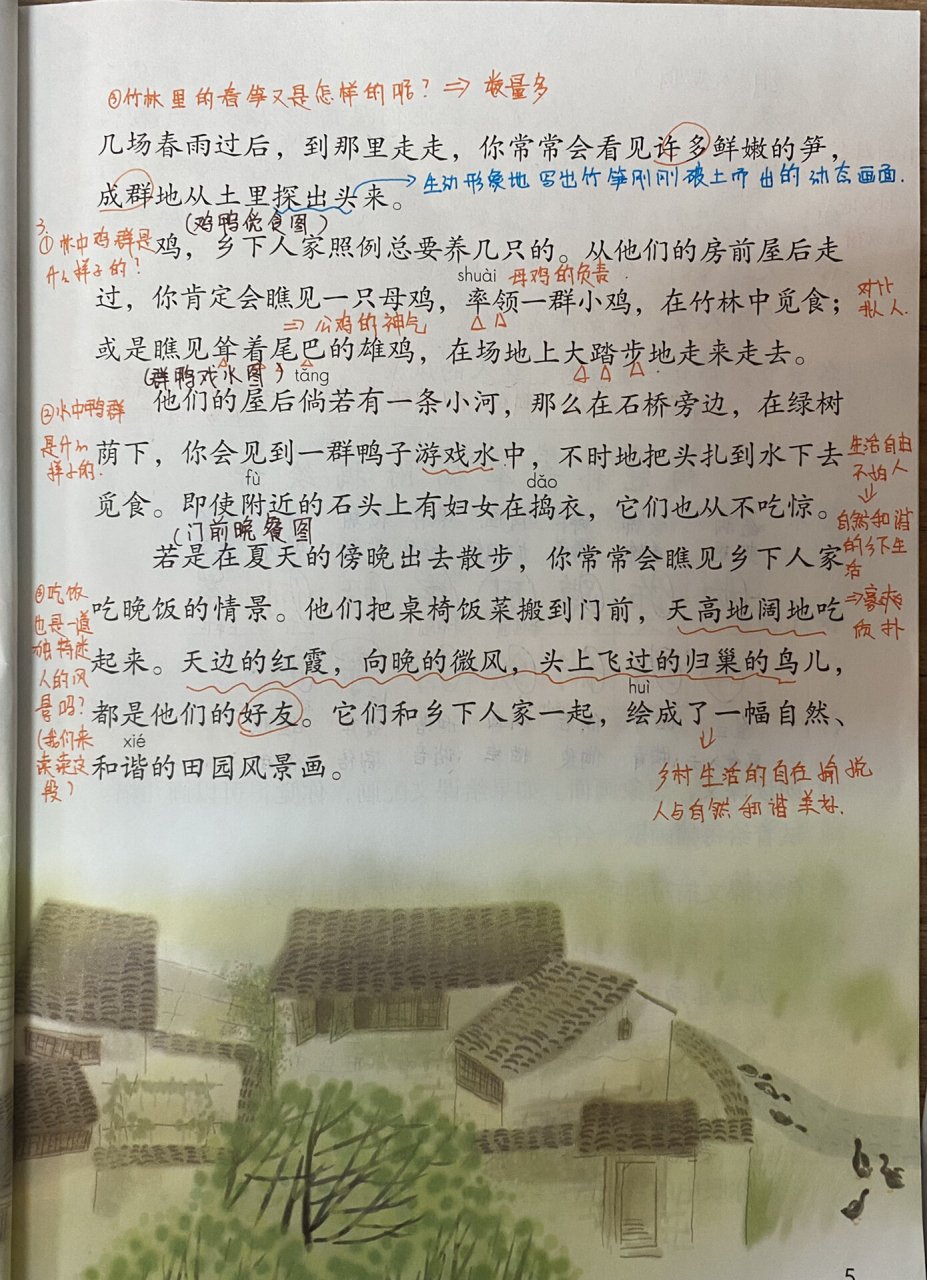 ③竹林里的春笋又是怎样的呢？⇒ 数量多
几场春雨过后，到那里走走，你常常会看见许多鲜嫩的笋，
成群地从土里探出头来。
生动形象地写出竹笋刚刚破土而出的动态画面.
(鸡鸭觅食图)
3.
①林中鸡群是
什么样子的？
鸡，乡下人家照例总要养几只的。从他们的房前屋后走
shuài
母鸡的负责
过，你肯定会瞧见一只母鸡，率领一群小鸡，在竹林中觅食；
对比
拟人.
⇒公鸡的神气
或是瞧见耸着尾巴的雄鸡，在场地上大踏步地走来走去。
(群鸭戏水图)
tǎng
他们的屋后倘若有一条小河，那么在石桥旁边，在绿树
②水中鸭群
是什么
样子的.
荫下，你会见到一群鸭子游戏水中，不时地把头扎到水下去
生活自由
不怕人
↓
自然和谐
的乡下生
活
fù
dǎo
觅食。即使附近的石头上有妇女在捣衣，它们也从不吃惊。
(门前晚餐图
若是在夏天的傍晚出去散步，你常常会瞧见乡下人家
吃晚饭的情景。他们把桌椅饭菜搬到门前，天高地阔地吃
⇒豪爽
质朴
④吃饭
也是一道
独特迷
人的风
景吗？
(我们来
读读这
段)
起来。天边的红霞，向晚的微风，头上飞过的归巢的鸟儿，
huì
都是他们的好友。它们和乡下人家一起，绘成了一幅自然、
xié
和谐的田园风景画。
↓
乡村生活的自在愉悦
人与自然和谐美好.
5